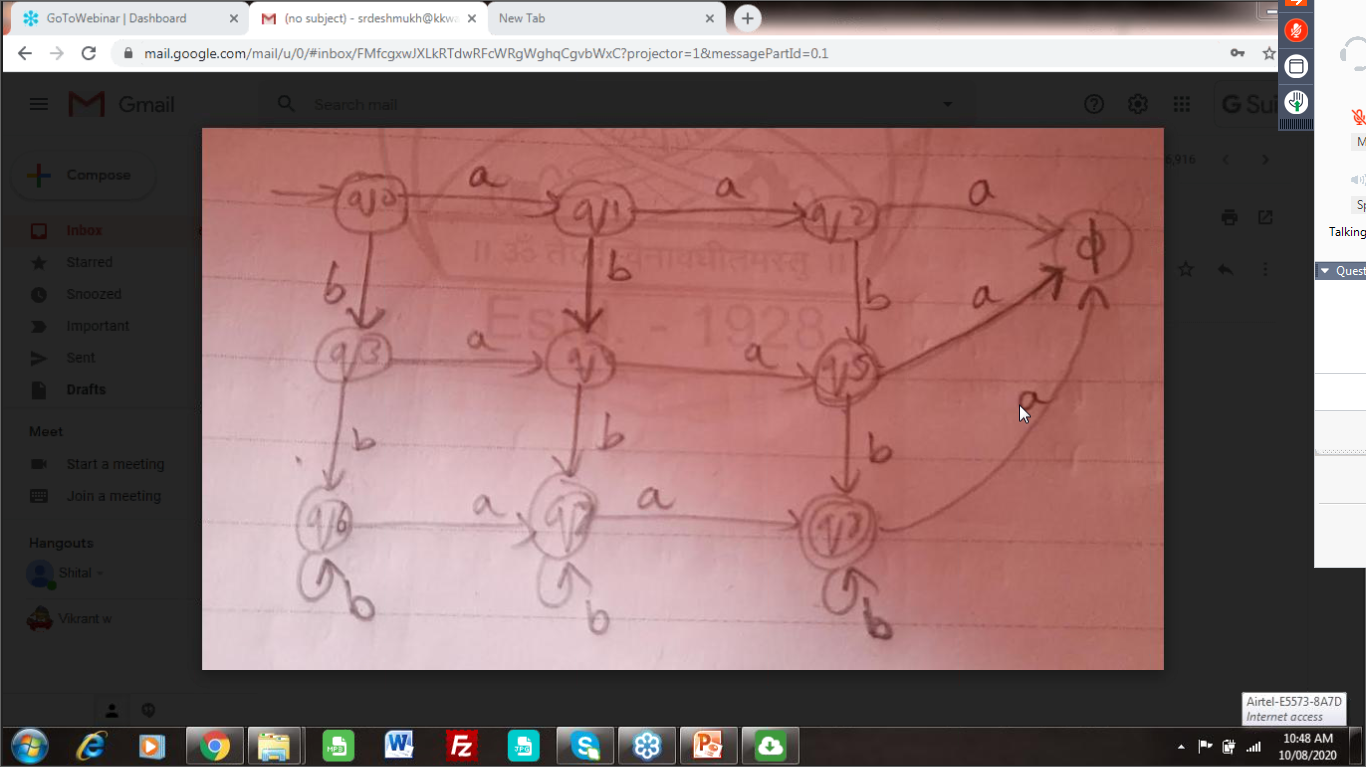 GoToWebinar | Dashboard
(no subject) - srdeshmukh@kkwa
New Tab
mail.google.com/mail/u/0/#inbox/FMfcgxwJXLkRTdwRFcWRgWghqCgvbWxC?projector=1&messagePartId=0.1
Gmail
Search mail
G Sui
Compose
6,916
Inbox
Starred
Snoozed
Important
Sent
Drafts
Meet
Start a meeting
Join a meeting
Hangouts
Shital
Vikrant w
q0 a q1 a q2 a ϕ
b b b a
q3 a q a q5 a
b b b
q6 a q7 a q
b b b
Estd. - 1928
Talking
Quest
Airtel-E5573-8A7D
Internet access
10:48 AM
10/08/2020